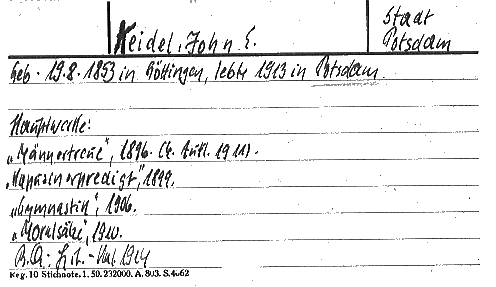 Keidel, John E.
Stadt
Potsdam
Geb. 19.8.1853 in Göttingen, lebte 1913 in Potsdam.
Hauptwerke:
„Männertreue", 1896. (2. Aufl. 1911).
„Kapuzinerpredigt", 1899.
„Gymnastik", 1906.
„Moralsäke", 1910.
B.Q.: Lit.-Kal. 1914
Reg. 10 Stichnote. 1. 50. 232000. A. 803. S. 4062